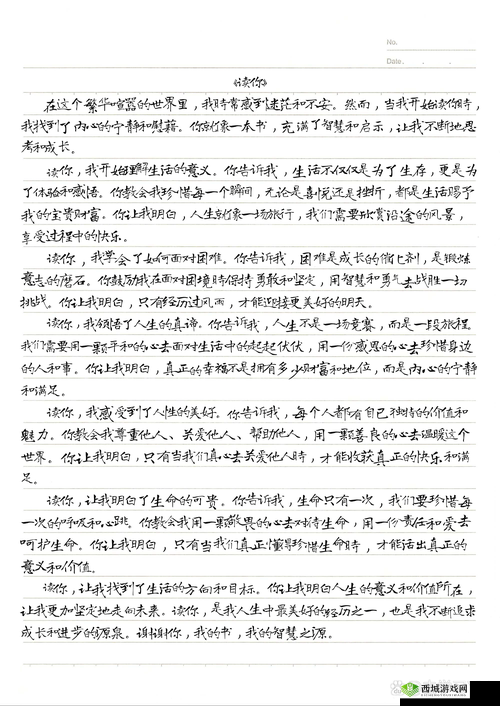 No.
Date. . .
《读你》
在这个繁华喧嚣的世界里，我时常感到迷茫和不安。然而，当我开始读你时，
我找到了内心的宁静和慰藉。你就像一本书，充满了智慧和启示，让我不断地思
考和成长。
读你，我开始理解生活的意义。你告诉我，生活不仅仅是为了生存，更是为
了体验和感悟。你教会我珍惜每一个瞬间，无论是喜悦还是挫折，都是生活赐予
我的宝贵财富。你让我明白，人生就像一场旅行，我们需要欣赏沿途的风景，
享受过程中的快乐。
读你，我学会了如何面对困难。你告诉我，困难是成长的催化剂，是锻炼
意志的磨石。你鼓励我在面对困境时保持勇敢和坚定，用智慧和勇气去战胜一切
挑战。你让我明白，只有经历过风雨，才能迎接更美好的明天。
读你，我领悟了人生的真谛。你告诉我，人生不是一场竞赛，而是一段旅程。
我们需要用一颗平和的心去面对生活中的起起伏伏，用一份感恩的心去珍惜身边
的人和事。你让我明白，真正的幸福不是拥有多少财富和地位，而是内心的宁静
和满足。
读你，我感受到了人性的美好。你告诉我，每个人都有自己独特的价值和
魅力。你教会我尊重他人、关爱他人、帮助他人，用一颗善良的心去温暖这个
世界。你让我明白，只有当我们真心去关爱他人时，才能收获真正的快乐和满
足。
读你，让我明白了生命的可贵。你告诉我，生命只有一次，我们要珍惜每
一次的呼吸和心跳。你教会我用一颗敬畏的心去对待生命，用一份责任和爱去
呵护生命。你让我明白，只有当我们真正懂得珍惜生命时，才能活出真正的
意义和价值。
读你，让我找到了生活的方向和目标。你让我明白人生的意义和价值所在，
让我更加坚定地走向未来。读你，是我人生中最美好的经历之一，也是我不断追求
成长和进步的源泉。谢谢你，我的书，我的智慧之源。
西城游戏网